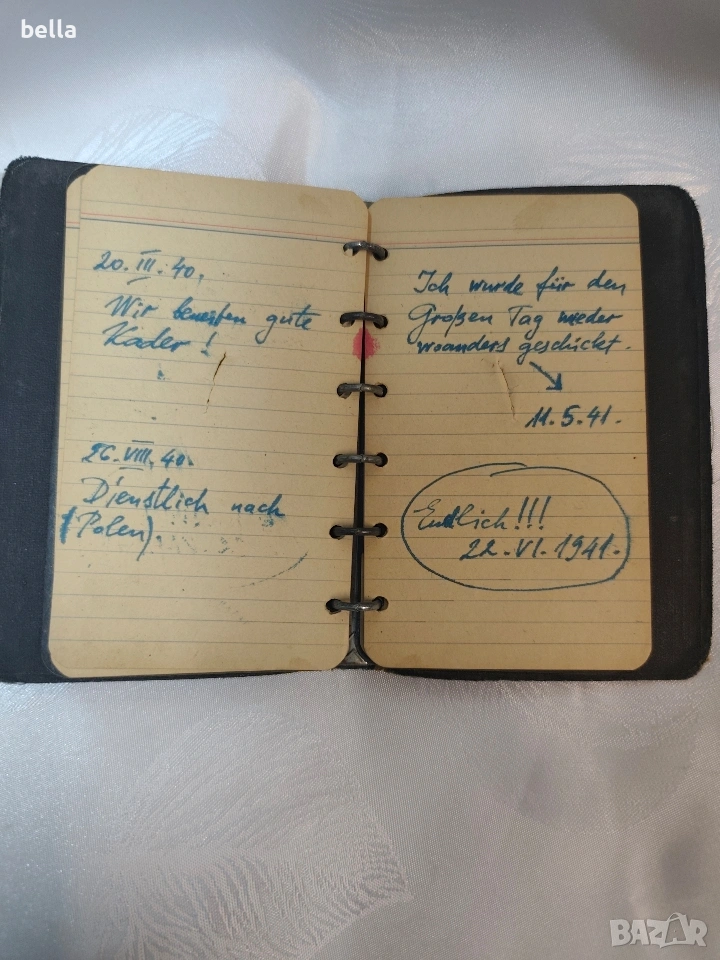 bella
20. III. 40.
Wir gute
Kader!
26. VIII. 40.
Dienstlich nach
(Polen).
Ich wurde für den
Großen Tag wieder
woanders geschickt.
11. 5. 41.
Endlich!!!
22. VI. 1941.
BAZAR